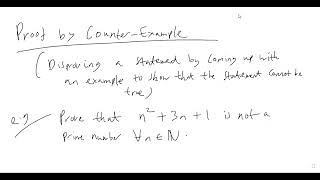 Proof by Counter-Example
(Disproving a statement by coming up with
an example to show that the statement cannot be
true)
e.g. Prove that n² + 3n + 1 is not a
prime number ∀n∈ℕ.